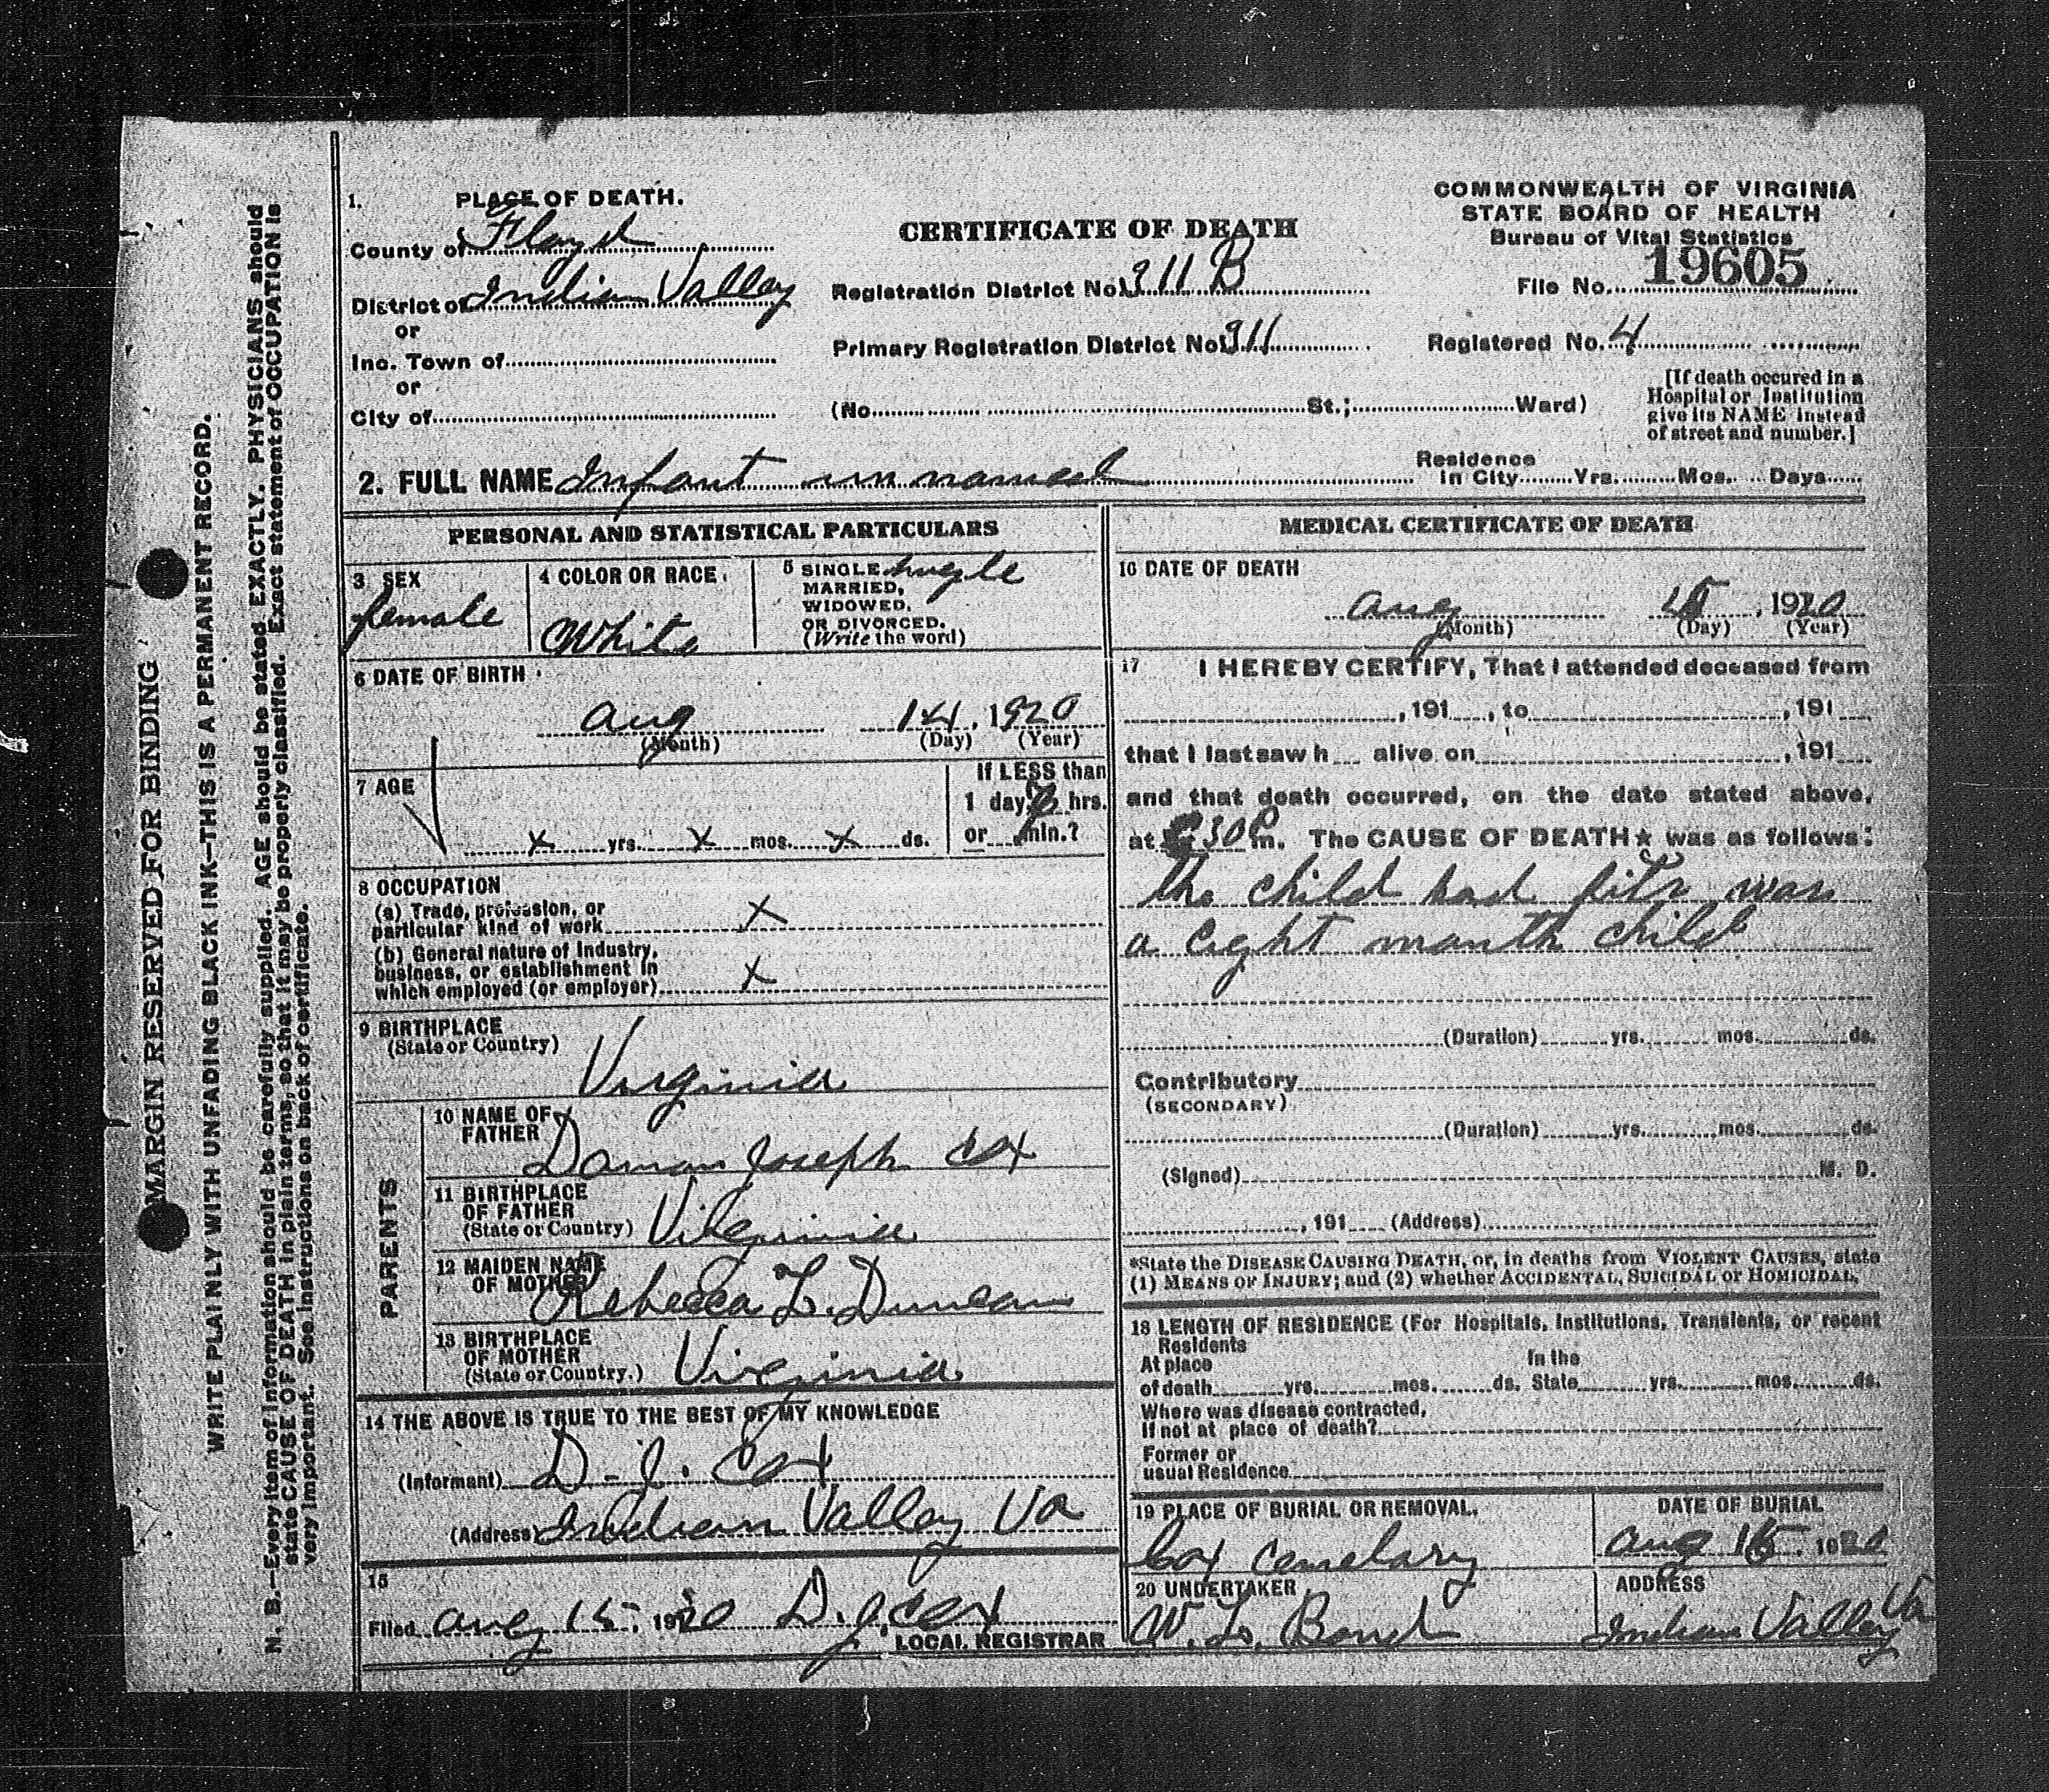 1. PLACE OF DEATH.
County of Floyd
District of Indian Valley
or
Inc. Town of
or
City of
CERTIFICATE OF DEATH
Registration District No. 311 B
Primary Registration District No. 311
(No. St.; Ward)
COMMONWEALTH OF VIRGINIA
STATE BOARD OF HEALTH
Bureau of Vital Statistics
File No. 19605
Registered No. 4
[If death occured in a
Hospital or Institution
give its NAME instead
of street and number.]
2. FULL NAME Infant un named
Residence
in City Yrs. Mos. Days
PERSONAL AND STATISTICAL PARTICULARS
3 SEX
female
4 COLOR OR RACE
White
5 SINGLE single
MARRIED,
WIDOWED,
OR DIVORCED.
(Write the word)
6 DATE OF BIRTH
Aug 14, 1920
(Month) (Day) (Year)
7 AGE
x yrs. x mos. x ds.
If LESS than
1 day, hrs.
or min.?
8 OCCUPATION
(a) Trade, profession, or
particular kind of work x
(b) General nature of Industry,
business, or establishment in
which employed (or employer) x
9 BIRTHPLACE
(State or Country)
Virginia
PARENTS
10 NAME OF
FATHER
Damon Joseph Cox
11 BIRTHPLACE
OF FATHER
(State or Country) Virginia
12 MAIDEN NAME
OF MOTHER
Rebecca L. Duncan
13 BIRTHPLACE
OF MOTHER
(State or Country.) Virginia
14 THE ABOVE IS TRUE TO THE BEST OF MY KNOWLEDGE
(Informant) D. J. Cox
(Address) Indian Valley Va
15
Filed Aug 15, 1920 D. J. Cox
LOCAL REGISTRAR
MEDICAL CERTIFICATE OF DEATH
16 DATE OF DEATH
Aug 15, 1920
(Month) (Day) (Year)
17 I HEREBY CERTIFY, That I attended deceased from
, 191 , to , 191
that I last saw h alive on , 191
and that death occurred, on the date stated above,
at 30 P m. The CAUSE OF DEATH★ was as follows:
the child had fits was
a eight month child
(Duration) yrs. mos. ds.
Contributory
(SECONDARY)
(Duration) yrs. mos. ds.
(Signed) M. D.
, 191 (Address)
*State the DISEASE CAUSING DEATH, or, in deaths from VIOLENT CAUSES, state
(1) MEANS OF INJURY; and (2) whether ACCIDENTAL, SUICIDAL or HOMICIDAL.
18 LENGTH OF RESIDENCE (For Hospitals, Institutions, Transients, or recent
Residents
At place
of death yrs. mos. ds.
In the
State yrs. mos. ds.
Where was disease contracted,
If not at place of death?
Former or
usual Residence
19 PLACE OF BURIAL OR REMOVAL.
Cox Cemetary
DATE OF BURIAL
Aug 16, 1920
20 UNDERTAKER
W. L. Bond
ADDRESS
Indian Valley Va
MARGIN RESERVED FOR BINDING
WRITE PLAINLY WITH UNFADING BLACK INK—THIS IS A PERMANENT RECORD.
N. B.—Every item of information should be carefully supplied. AGE should be stated EXACTLY. PHYSICIANS should
state CAUSE OF DEATH in plain terms, so that it may be properly classified. Exact statement of OCCUPATION is
very important. See instructions on back of certificate.